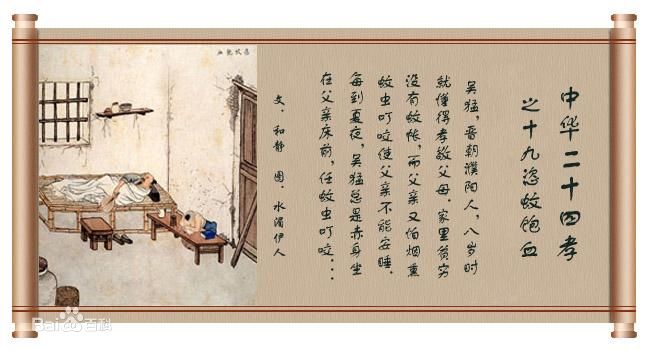 中华二十四孝
之十九恣蚊饱血
吴猛，晋朝濮阳人，八岁时
就懂得孝敬父母。家里贫穷
没有蚊帐，而父亲又怕烟熏
蚊虫叮咬使父亲不能安睡．
每到夏夜，吴猛总是赤身坐
在父亲床前，任蚊虫叮咬．．．
文．和静 图．水濁伊人
恣蚊飽血
Bai百科